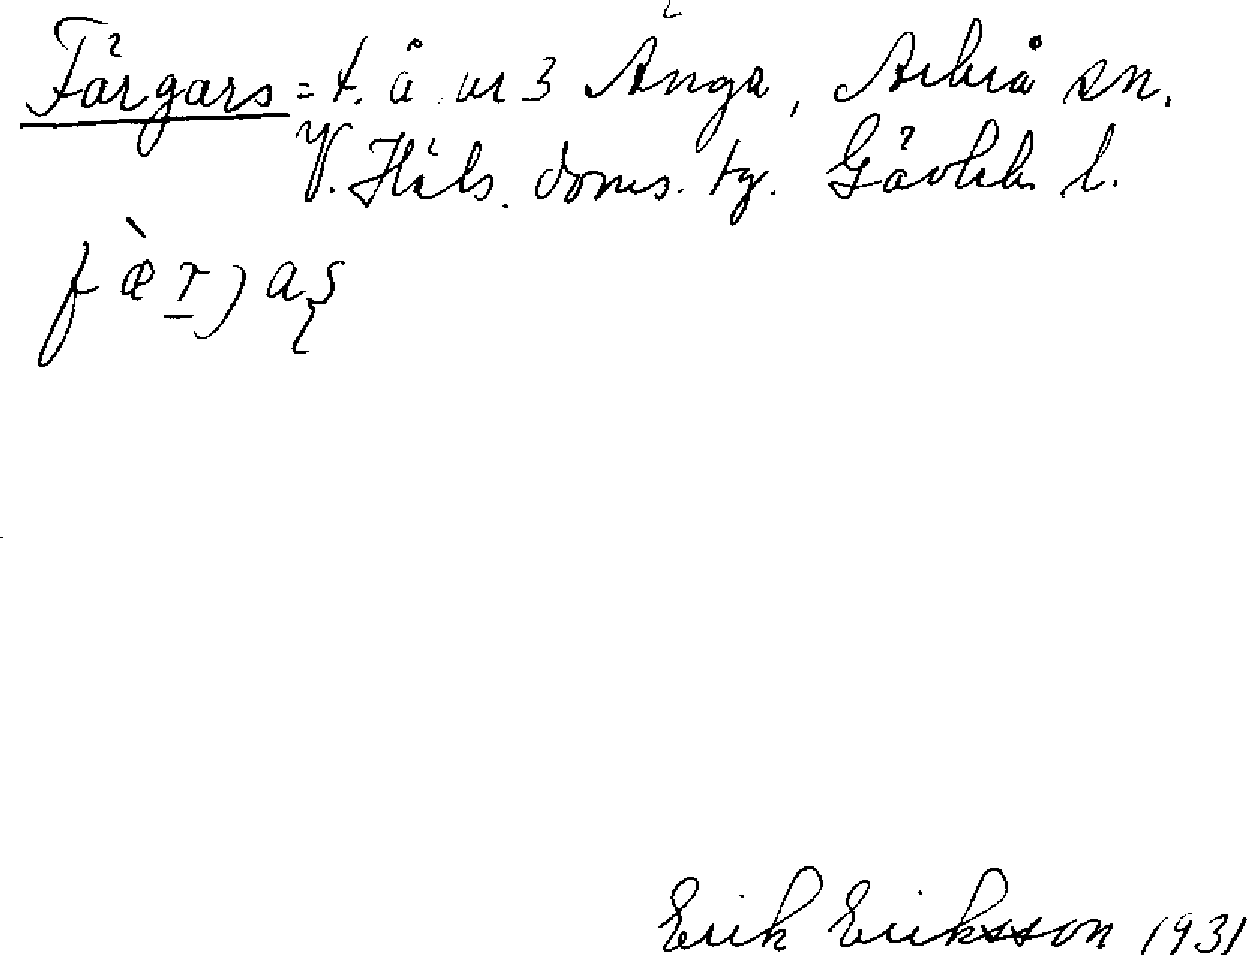 Färgars = t. å nr 3 Änga, Arbrå sn.
V. Häls. doms. tg. Gävleb. l.
fæ̀r̲jaʂ
Erik Eriksson 1931